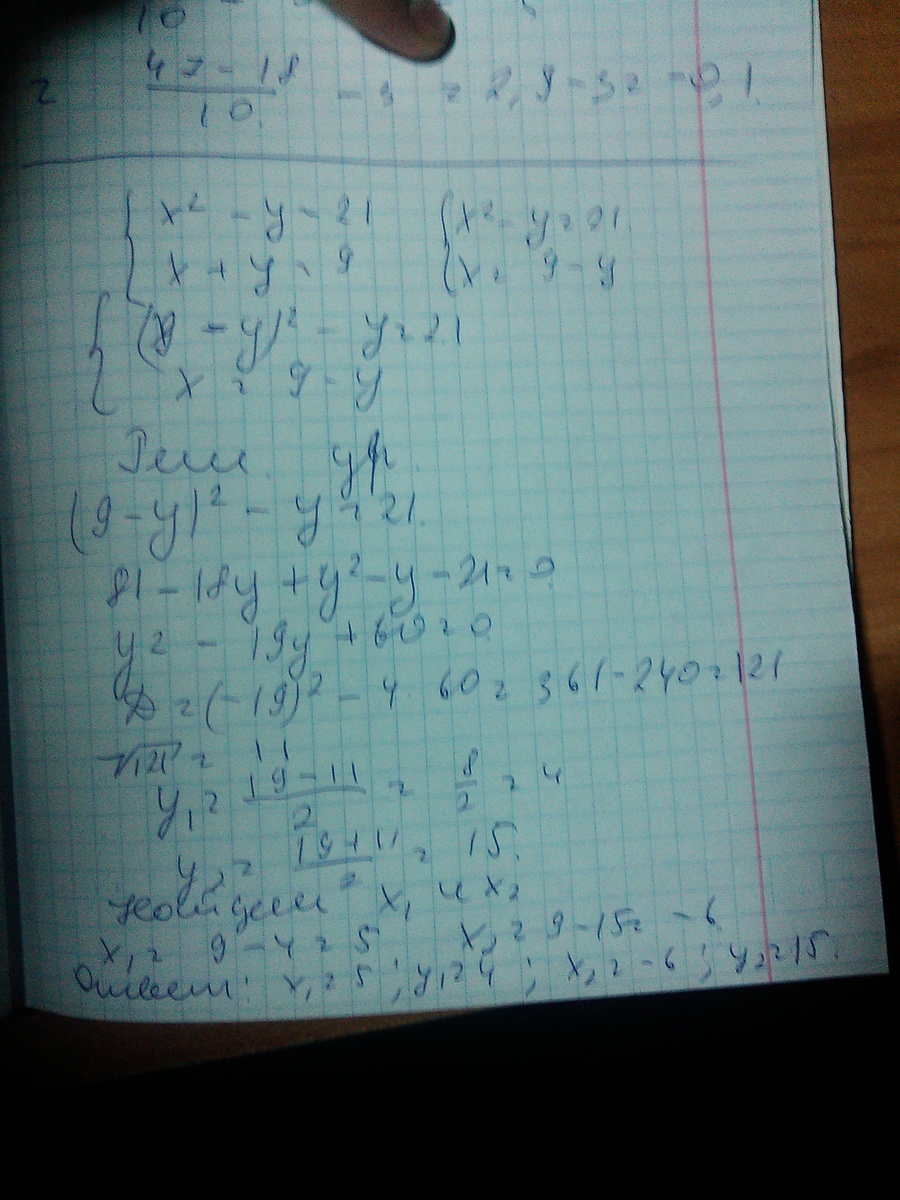 10
= 47-18/10 - 3 = 2,9-3= -0,1.
{ x² - y = 21 { x² - y = 21.
{ x + y = 9 { x = 9-y
{ (9 - y)² - y = 21
{ x = 9-y
Реши ур.
(9-y)² - y = 21.
81 - 18y + y² - y - 21 = 0
y² - 19y + 60 = 0
D = (-19)² - 4 · 60 = 361-240=121
√121 = 11
y₁ = 19-11/2 = 8/2 = 4
y₂ = 19+11/2 = 15.
Найдем x₁ и x₂
x₁ = 9-4=5 x₂ = 9-15= -6
Ответ: x₁=5; y₁=4; x₂=-6; y₂=15.